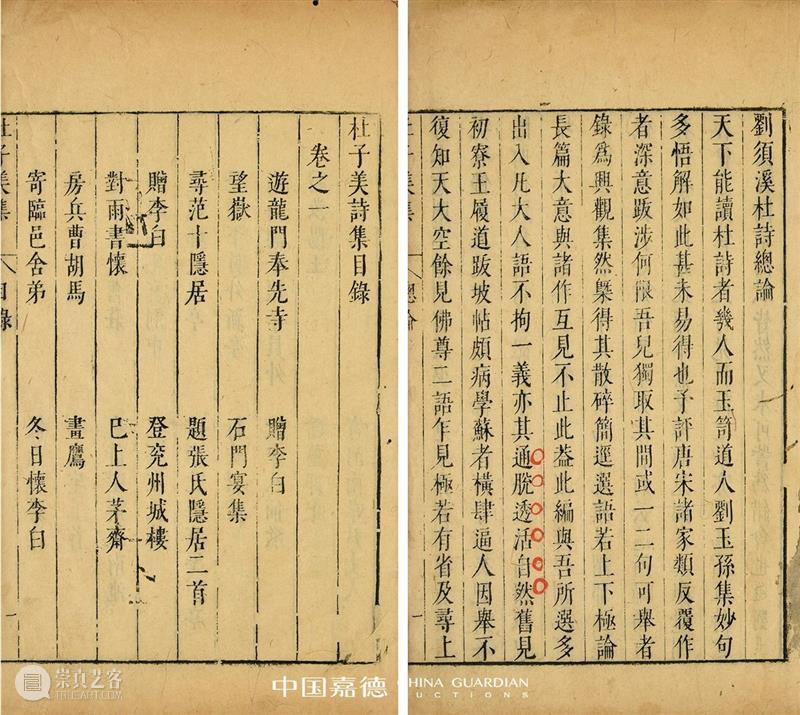 劉須溪杜詩總論
天下能讀杜詩者幾人而玉笥道人劉玉孫集妙句
多悟解如此甚未易得也予評唐宋諸家類反覆作
者深意跋涉何限吾兒獨取其間或一二句可舉者
錄為興觀集然槩得其散碎簡逕選語若上下極論
長篇大意與諸作互見不止此葢此編與吾所選多
出入凡大人語不拘一義亦其通脫透活自然舊見
初寮王履道跋坡帖頗病學蘇者橫肆逼人因舉不
復知天大空餘見佛尊二語乍見極若有省及尋上
杜子美集 總論
杜子美詩集目錄
卷之一
遊龍門奉先寺 贈李白
望嶽 石門宴集
尋范十隱居 題張氏隱居二首
贈李白 登兖州城樓
對雨書懷 巳上人茅齋
房兵曹胡馬 畫鷹
寄臨邑舍弟 冬日懷李白
杜子美集 目錄 一
崇真艺客
中国嘉德 CHINA GUARDIAN
AUCTIONS